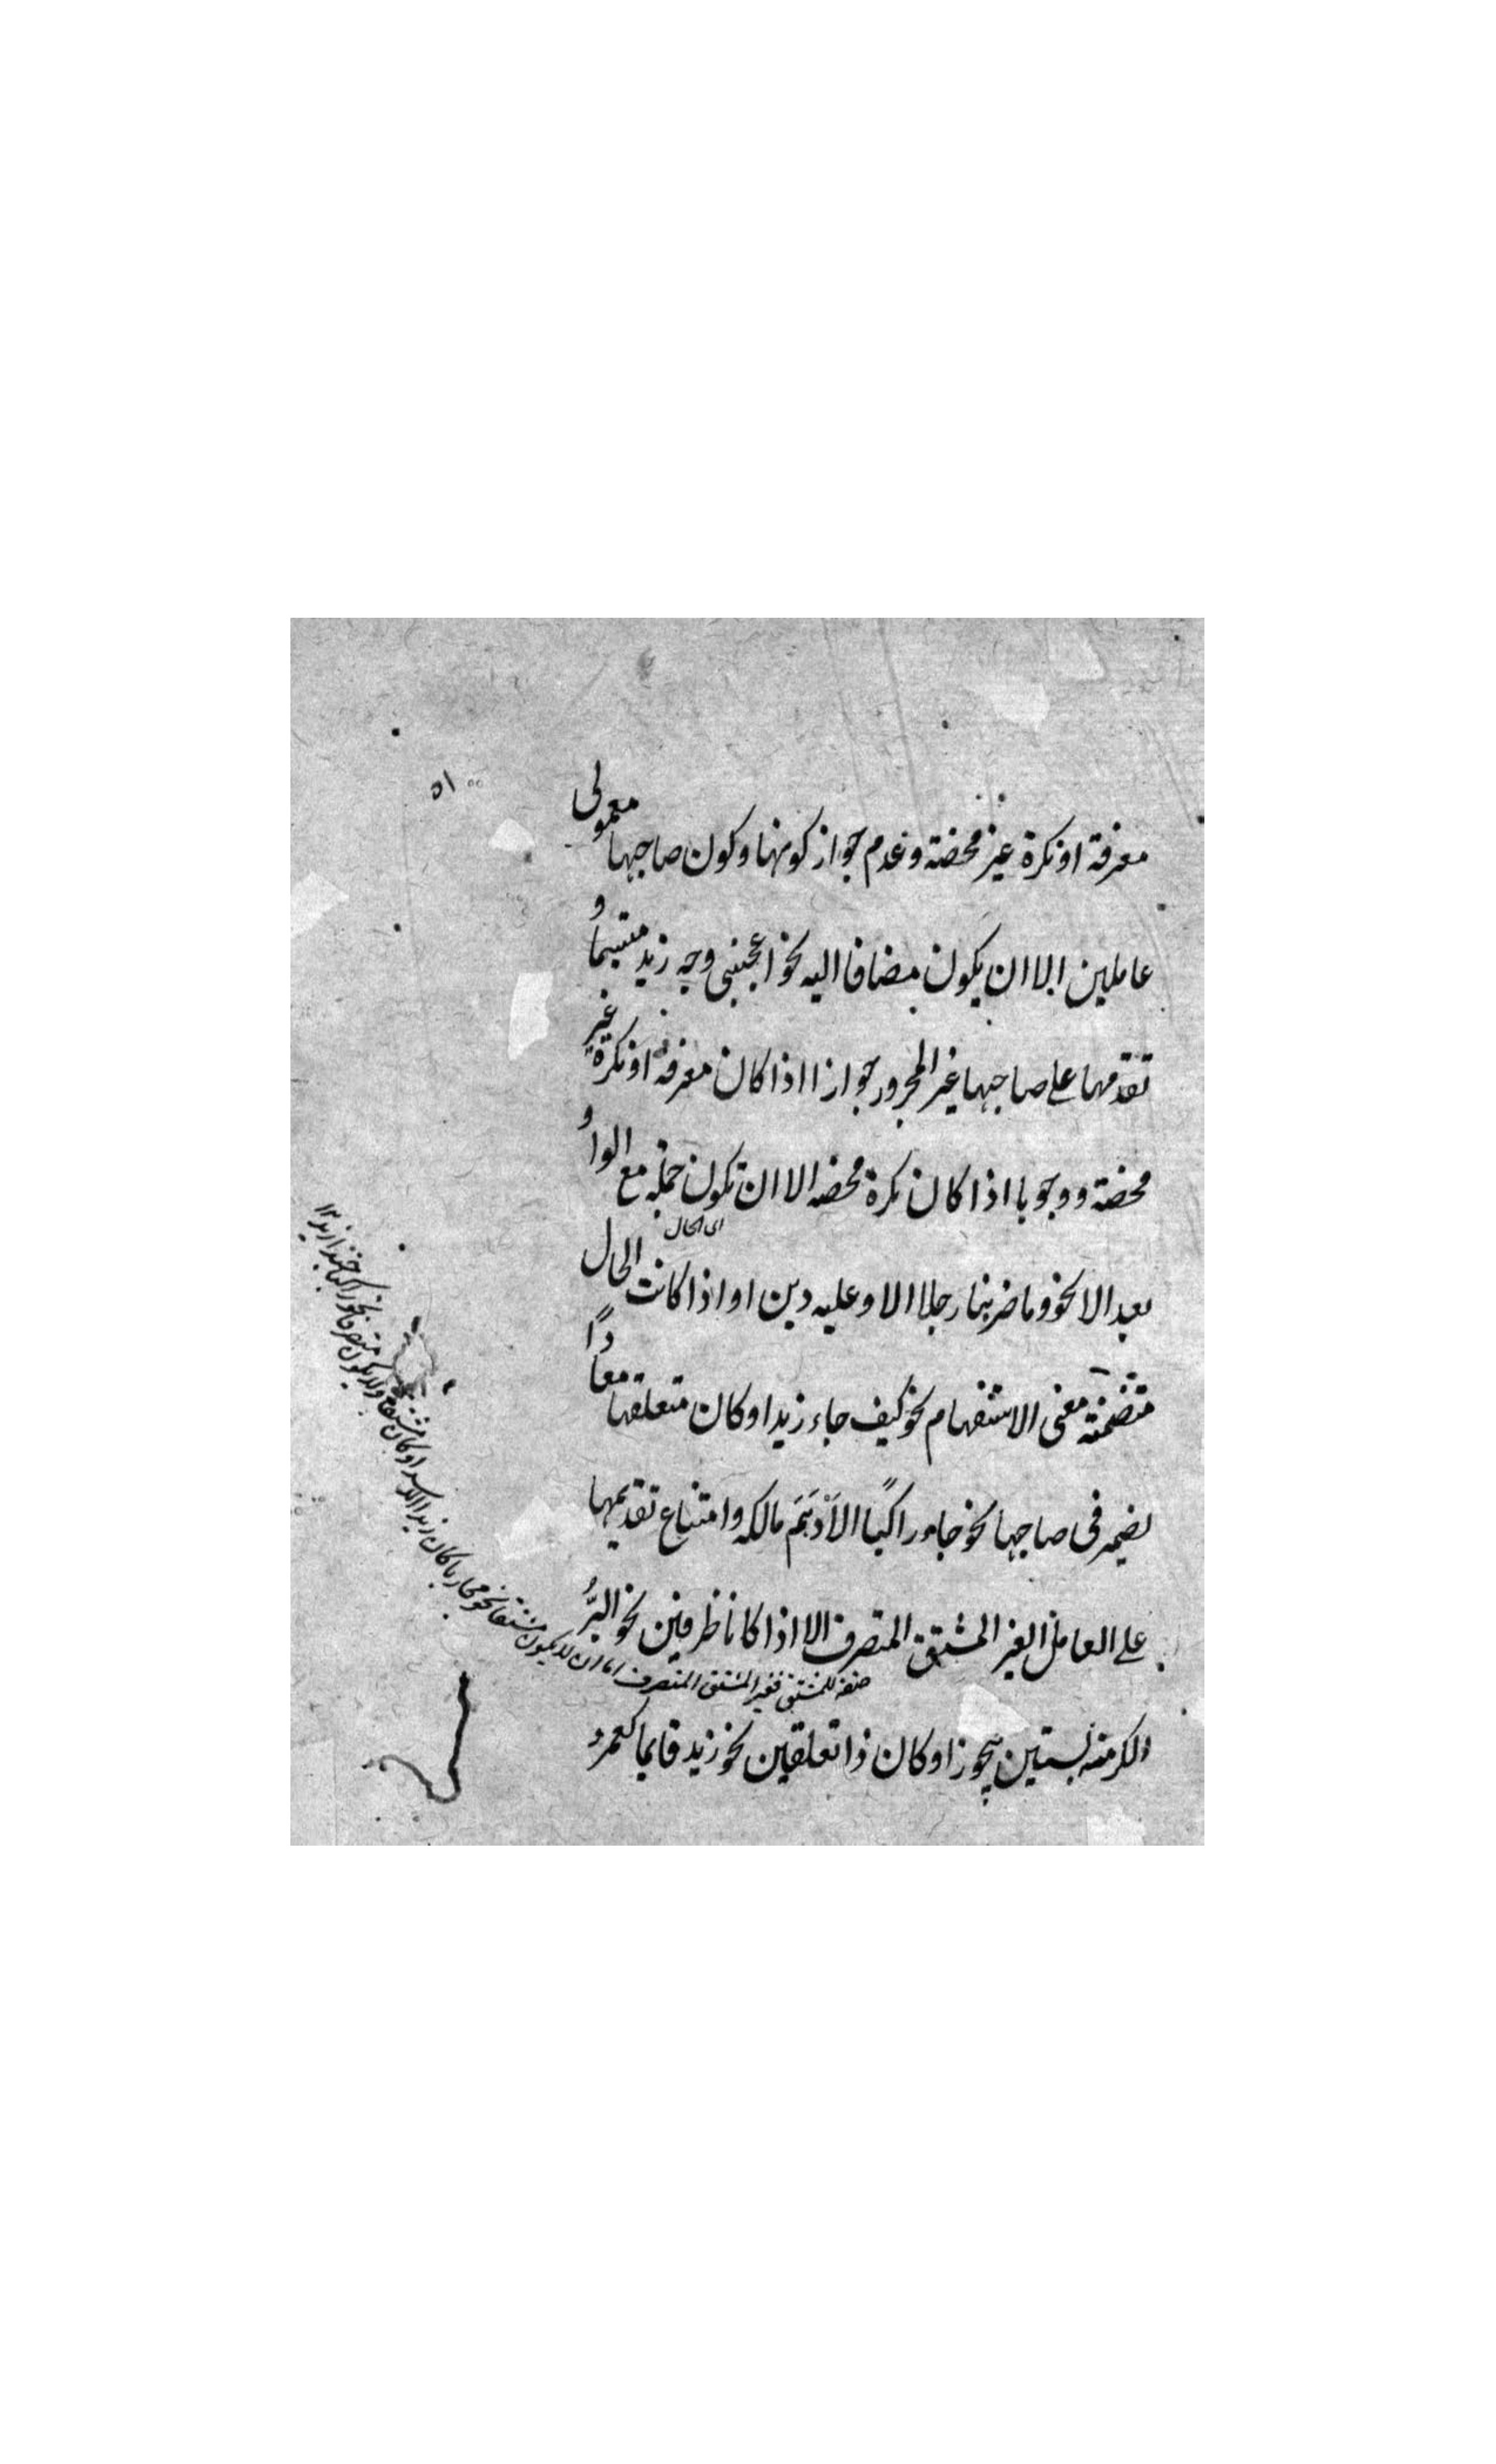 ٥١
معرفة او نكرة غير محضة وعدم جواز كونها وكون صاحبها معمولى
عاملين الا ان يكون مضافا اليه نحو اعجبنى وجه زيد متبسما و
تقدمها على صاحبها غير المجرور جوازا اذا كان معرفة او نكرة غير
محضة ووجوبا اذا كان نكرة محضه الا ان تكون جملة مع الواو
بعد الا نحو وما ضربنا رجلا الا وعليه دين او اذا كانت الحال
اى الحال
متضمنة معنى الاستفهام نحو كيف جاء زيد او كان متعلقها معادًا
بضمير فى صاحبها نحو جاء راكبًا الأدهَمَ مالكه وامتناع تقديمها
على العامل الغير المشتق المتصرف الا اذا كانا ظرفين نحو البُرُّ
صفة للمشتق فغير المشتق المتصرف اما ان لا يكون مشتقا نحو
الكر منه بستين يجوز او كان ذا تعلقين نحو زيد قايما كعمرو